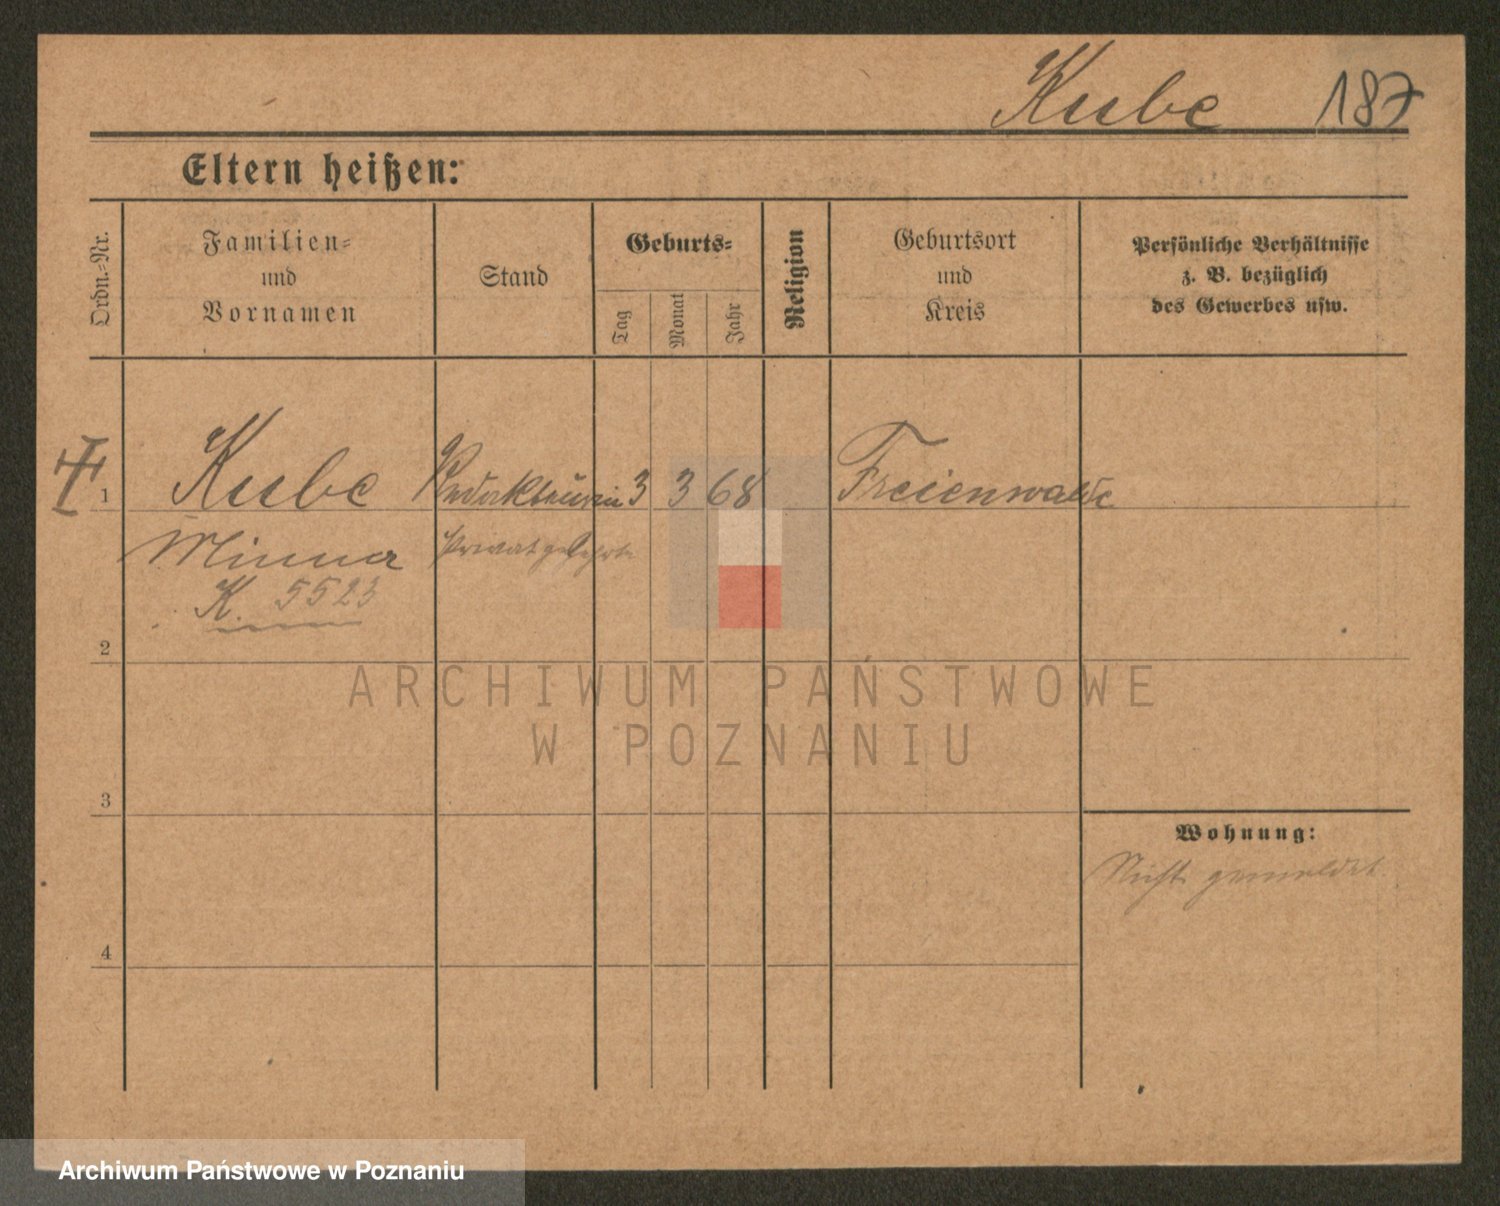 Kube 187
Eltern heißen:
Ordn.-Nr.
Familien-
und
Vornamen
Stand
Geburts-
Tag
Monat
Jahr
Religion
Geburtsort
und
Kreis
Persönliche Verhältnisse
z. B. bezüglich
des Gewerbes usw.
1 Kube Redakteurin 3 3 68 Freienwalde
Minna Privatgelehrte
K. 5523
2
ARCHIWUM PAŃSTWOWE
W POZNANIU
3
Wohnung:
Nicht gemeldet.
4
Archiwum Państwowe w Poznaniu